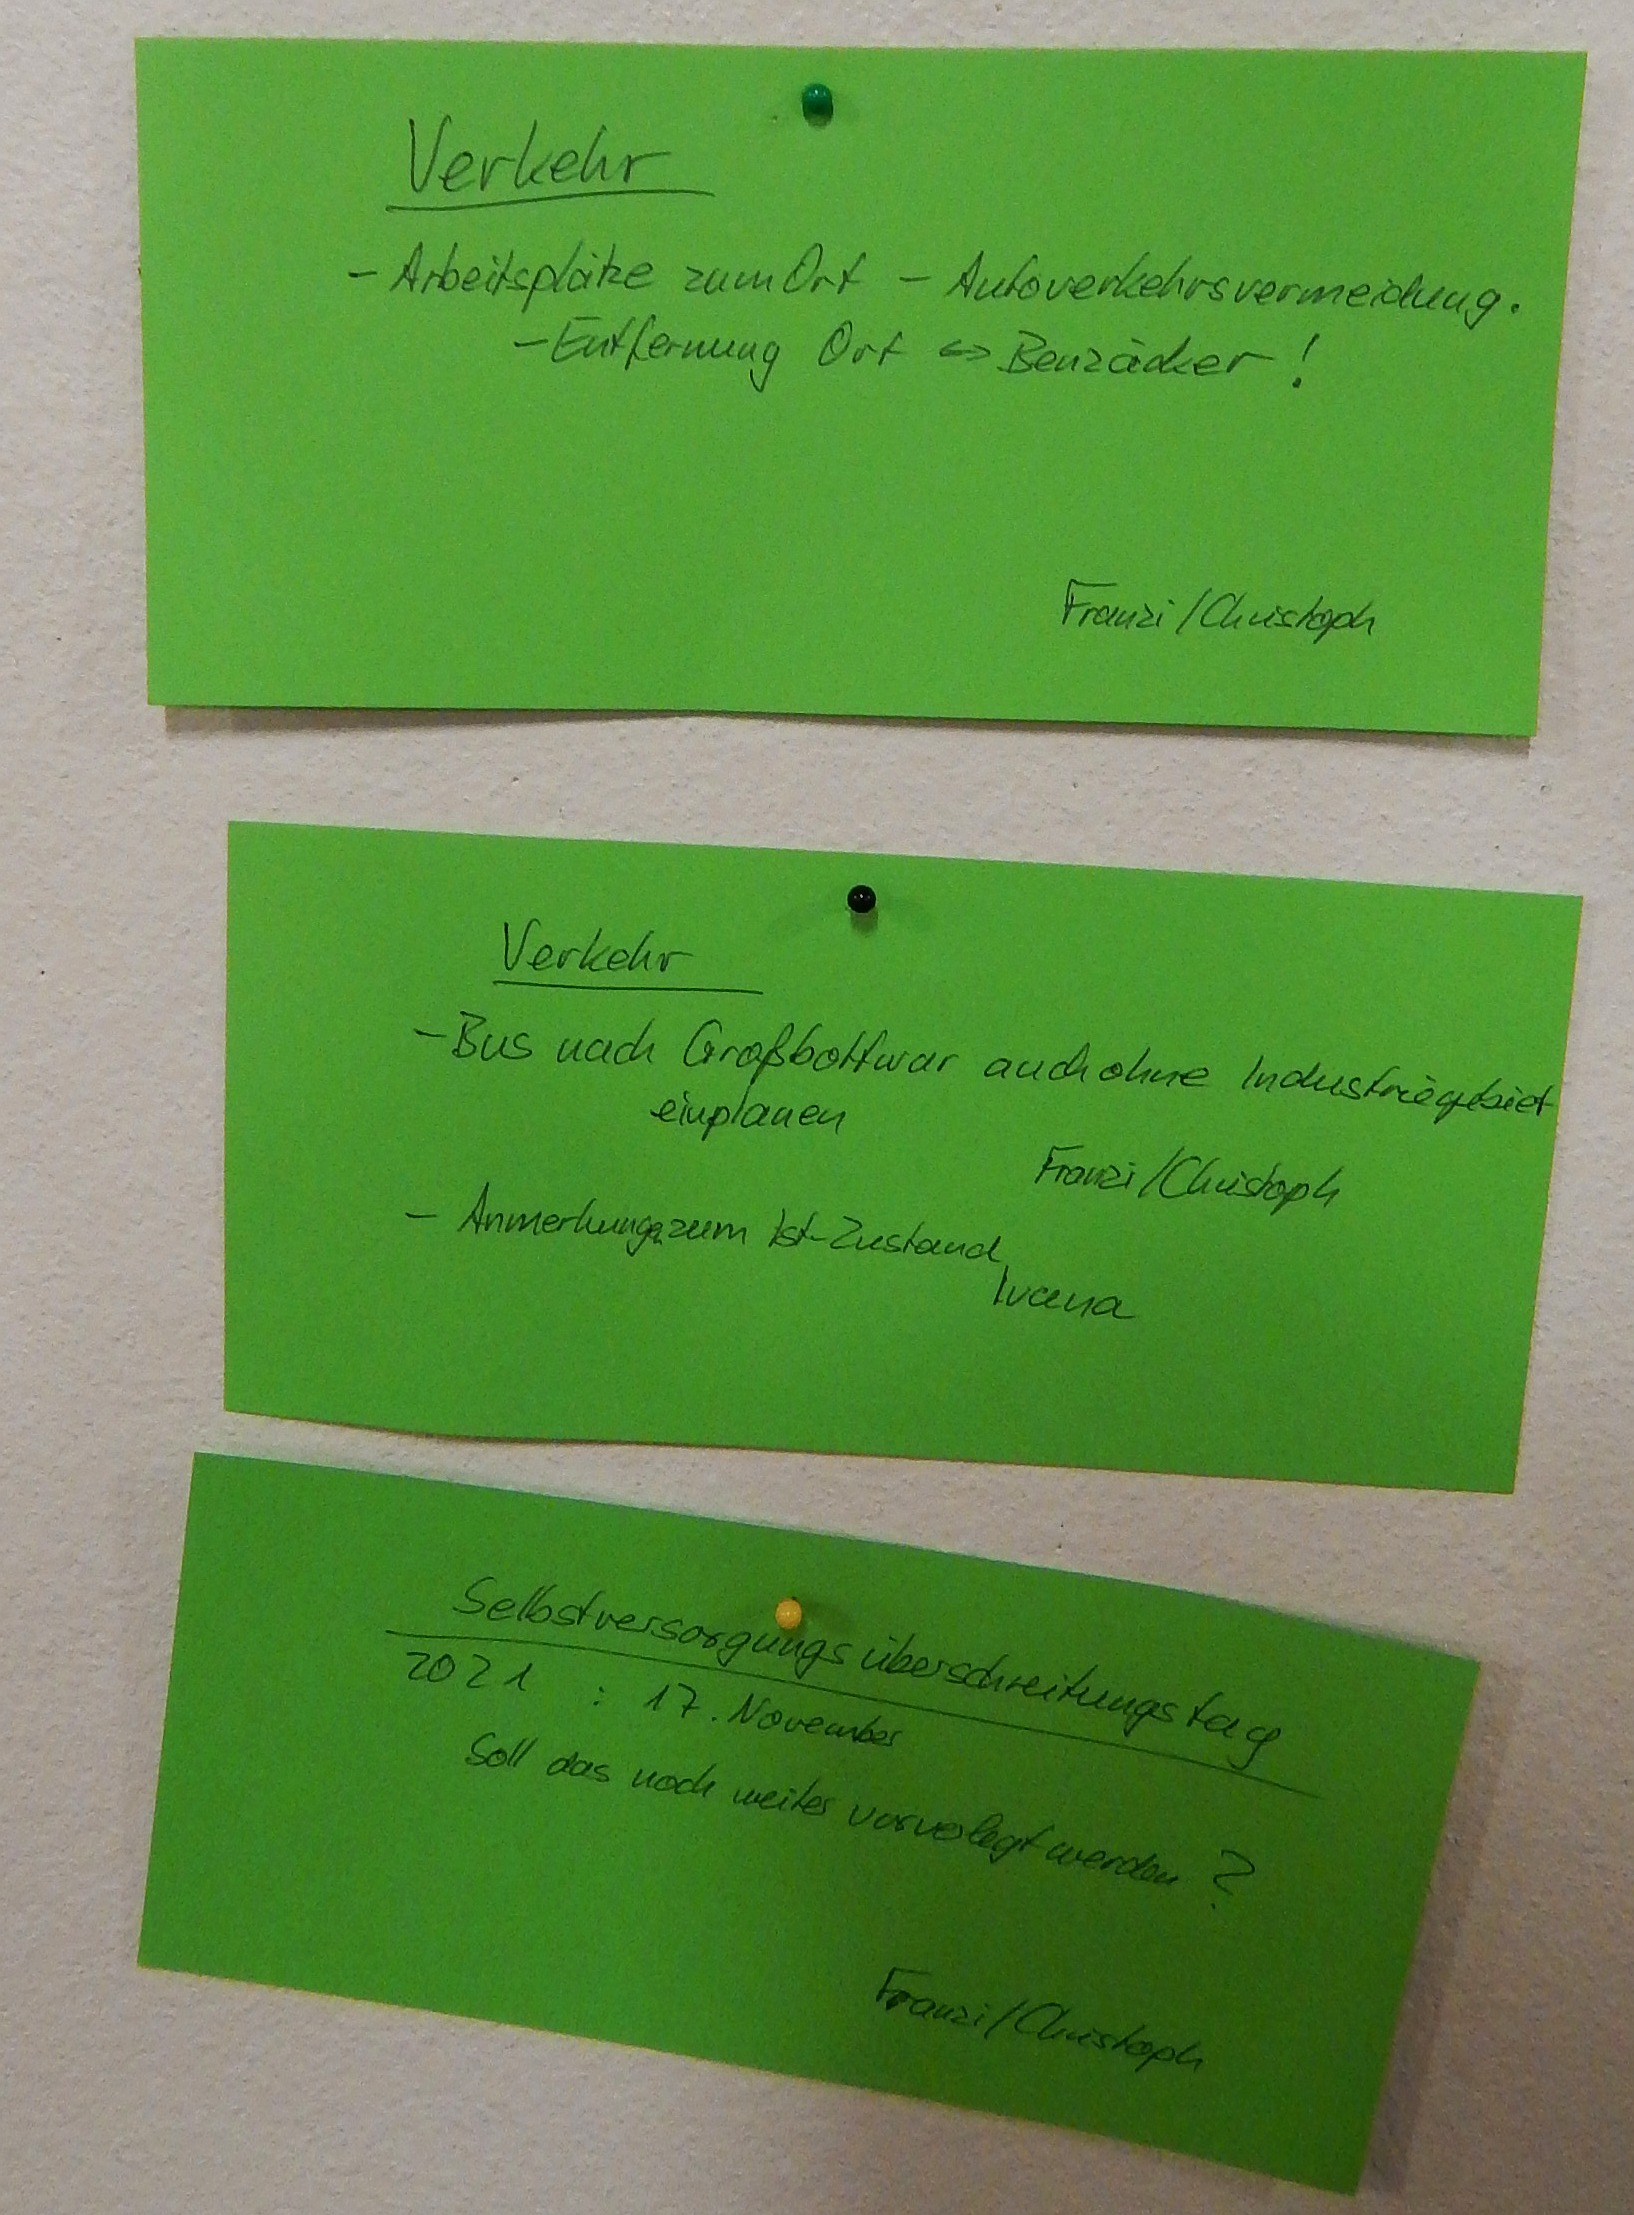 Verkehr
- Arbeitsplätze zum Ort - Autoverkehrsvermeidung.
- Entfernung Ort <-> Benzäcker!
Franzi/Christoph
Verkehr
- Bus nach Großbottwar auch ohne Industriegebiet
einplanen
Franzi/Christoph
- Anmerkung zum Ist-Zustand
Ivana
Selbstversorgungsüberschreitungstag
2021 : 17. November
Soll das noch weiter vorverlegt werden?
Franzi/Christoph